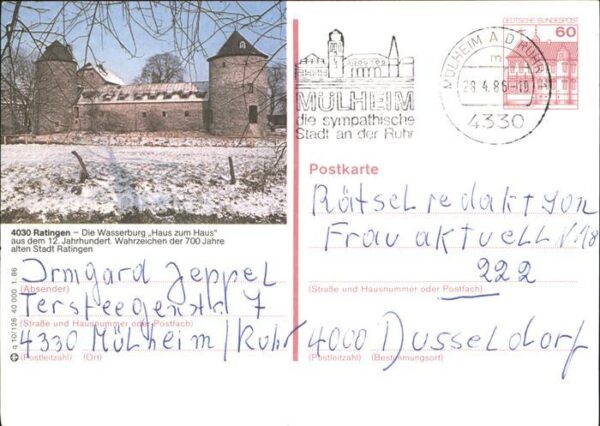 4030 Ratingen – Die Wasserburg „Haus zum Haus"
aus dem 12. Jahrhundert. Wahrzeichen der 700 Jahre
alten Stadt Ratingen
Irmgard Jeppel
(Absender)
Tersteegenstr 7
(Straße und Hausnummer oder Postfach)
4330 Mülheim/Ruhr
(Postleitzahl) (Ort)
MÜLHEIM
die sympathische
Stadt an der Ruhr
MÜLHEIM A D RUHR
4330
DEUTSCHE BUNDESPOST
60
Postkarte
Rätselredaktion
Frau aktuell
222
(Straße und Hausnummer oder Postfach)
4000 Dusseldorf
(Postleitzahl) (Bestimmungsort)